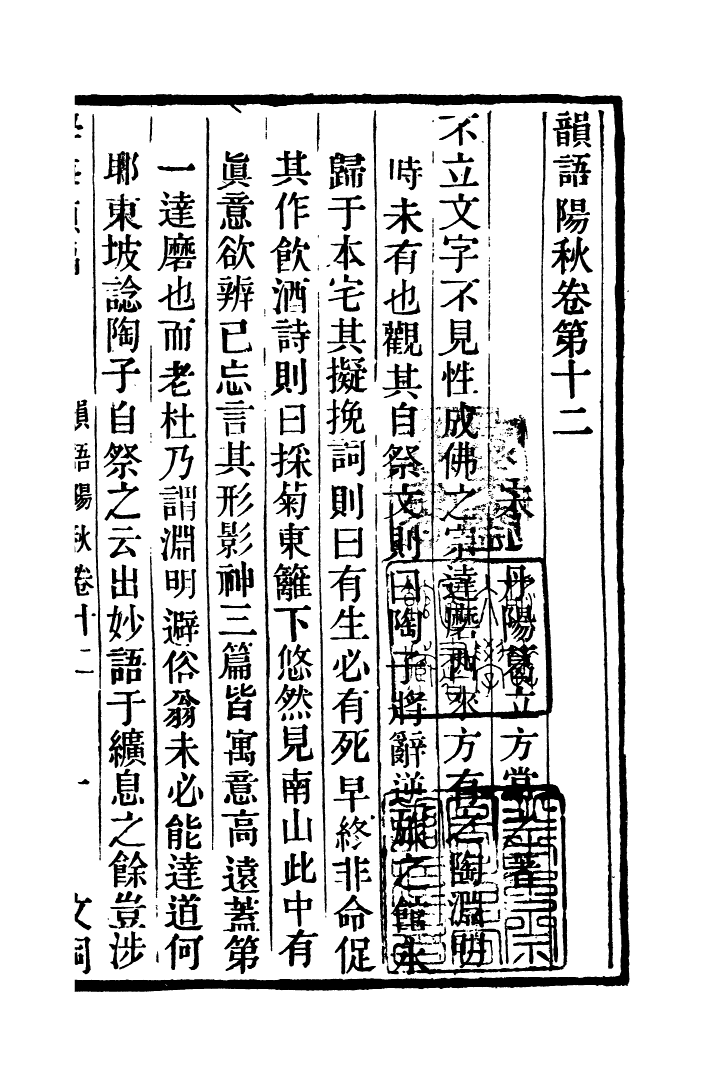 韻語陽秋卷第十二
宋 丹陽葛立方常之著
不立文字不見性成佛之宗達磨西來方有之陶淵明
時未有也觀其自祭文則曰陶子將辭逆旅之館永
歸于本宅其擬挽詞則曰有生必有死早終非命促
其作飲酒詩則曰採菊東籬下悠然見南山此中有
眞意欲辨已忘言其形影神三篇皆寓意高遠蓋第
一達磨也而老杜乃謂淵明避俗翁未必能達道何
耶東坡諗陶子自祭之云出妙語于纊息之餘豈涉
韻語陽秋卷十二 一